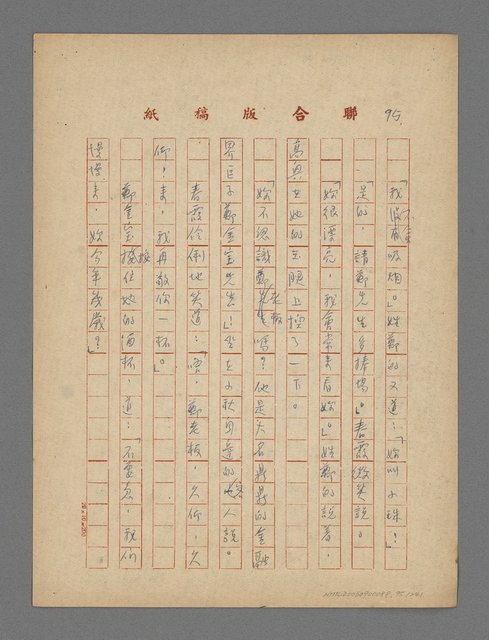 聯合版稿紙
95.
「我不會吸烟。」姓鄭的又道：「妳叫小珠！」
「是的，請鄭先生多捧場。」春霞微笑說。
「妳很漂亮，我會常來看妳。」姓鄭的說着，
高興在她的玉腿上捏了一下。
「妳不認識鄭老板嗎？他是大名鼎鼎的金融
界巨子鄭金宝先生！」坐在小秋月旁的客人說。
春霞伶俐地笑道：「唔，鄭老板，久仰，久
仰！來，我再敬你一杯。」
鄭金宝接住她的酒杯，道：「不要急，我們
慢慢來，妳今年幾歲？」